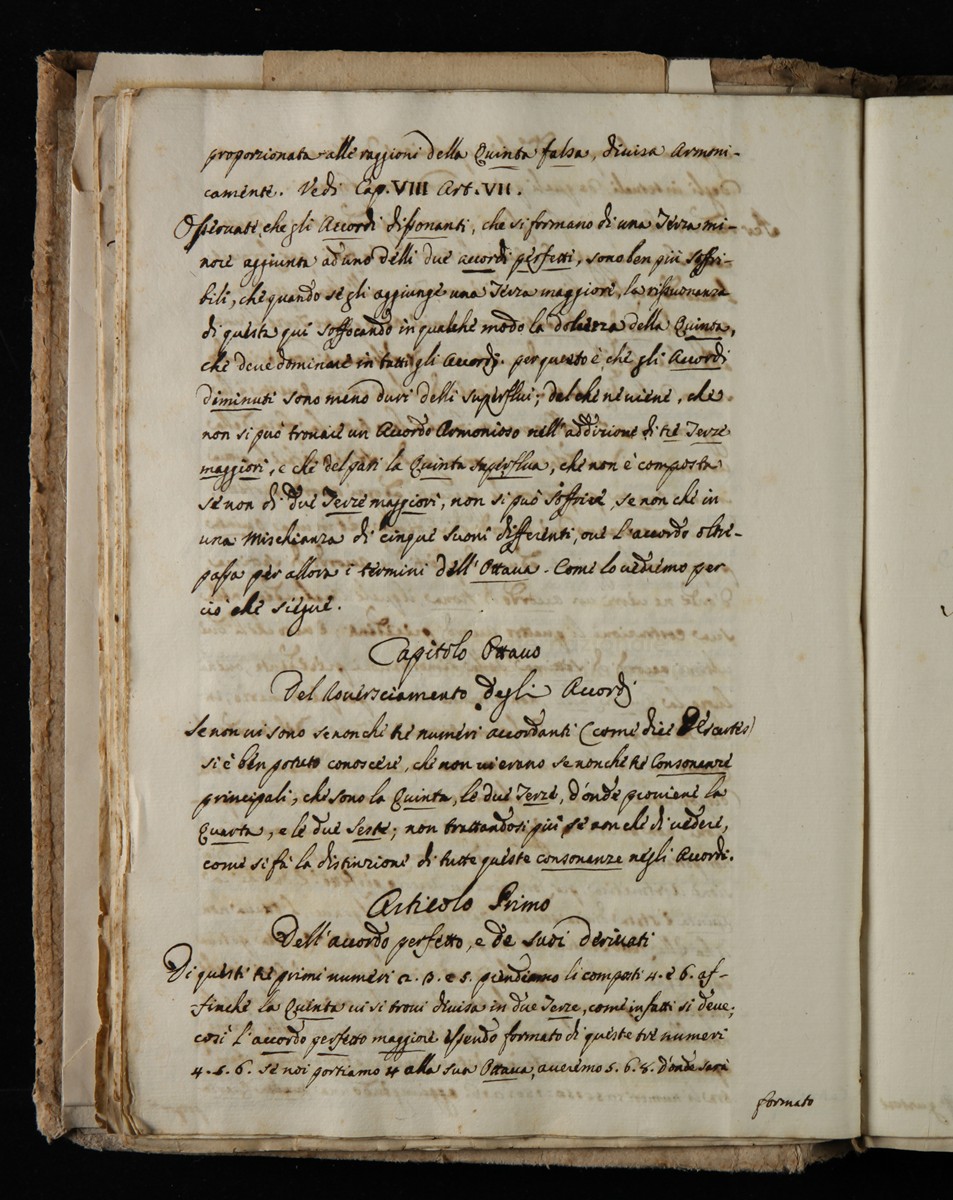 proporzionata alle raggioni della Quinta falsa, divisa Armoni-
camente. Vedi Cap. VIII Art. VII.
Osservate, che gli Accordi dissonanti, che si formano di una Terza mi-
nore aggiunta ad uno delli due accordi perfetti, sono ben più soffri-
bili, che quando se gli aggiunge una Terza maggiore, la rissuonanza
di questa qui soffocando in qualche modo la dolcezza della Quinta,
che deve dominare in tutti gli Accordi. per questo è, che gli Accordi
diminuti sono meno duri delli superflui; del che ne viene, che
non si può trovare un Accordo Armonioso nell'addizione di tre Terze
maggiori, e che del pari la Quinta superflua, che non è composta
se non di due Terze maggiori, non si può soffrire, se non che in
una Mischianza di cinque suoni differenti, ove l'accordo oltre-
passa per allora i termini dell'Ottava. Come lo vedremo per
ciò che siegue.
Capitolo Ottavo
Del Roversciamento degli Accordi
Se non vi sono se non che tre numeri accordanti (come dice Descartes)
si è ben potuto conoscere, che non vi erano se non che tre Consonanze
principali, che sono la Quinta, le due Terze, d'onde proviene la
Quarta, e le due Seste; non trattandosi più, se non che di vedere,
come si fà la distinzione di tutte queste consonanze negli Accordi.
Articolo Primo
Dell'accordo perfetto, e de suoi derivati
Di questi tre primi numeri 2. 3. e 5. prendiamo li composti 4. e 6. af-
-finche la Quinta vi si trovi divisa in due Terze, come infatti si deve;
così l'accordo perfetto maggiore essendo formato di queste tre numeri
4. 5. 6. se noi portiamo 4 alla sua Ottava, averemo 5. 6. 8. d'onde sarà
formato